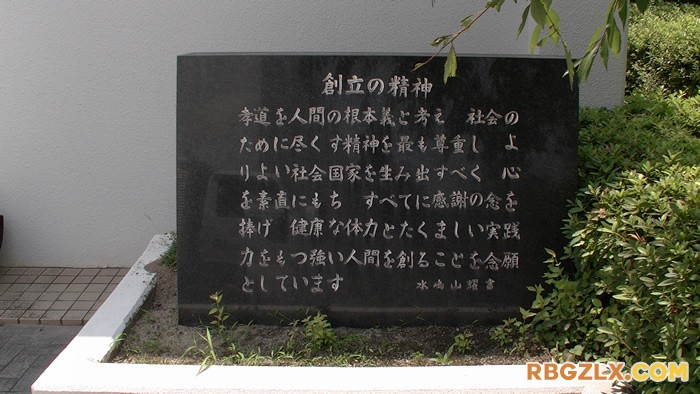 創立の精神
孝道を人間の根本義と考え 社会の
ために尽くす精神を最も尊重し よ
りよい社会国家を生み出すべく 心
を素直にもち すべてに感謝の念を
捧げ 健康な体力とたくましい実践
力をもつ強い人間を創ることを念願
としています
水嶋山耀書
RBGZLX.COM